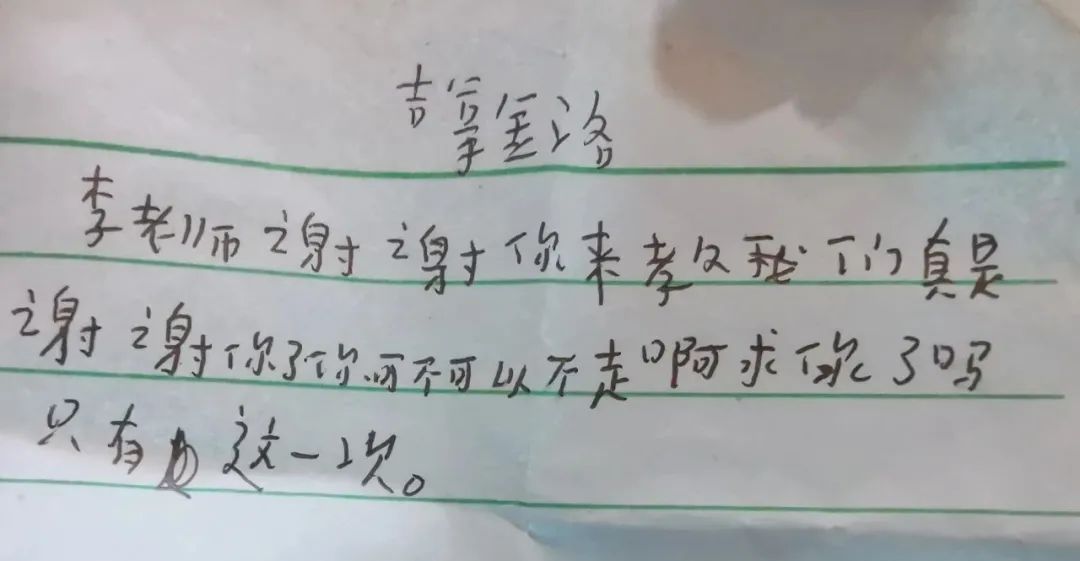 李老师谢谢你来教我们真是
谢谢你了你可不可以不走啊求你了吗
只有这一次。